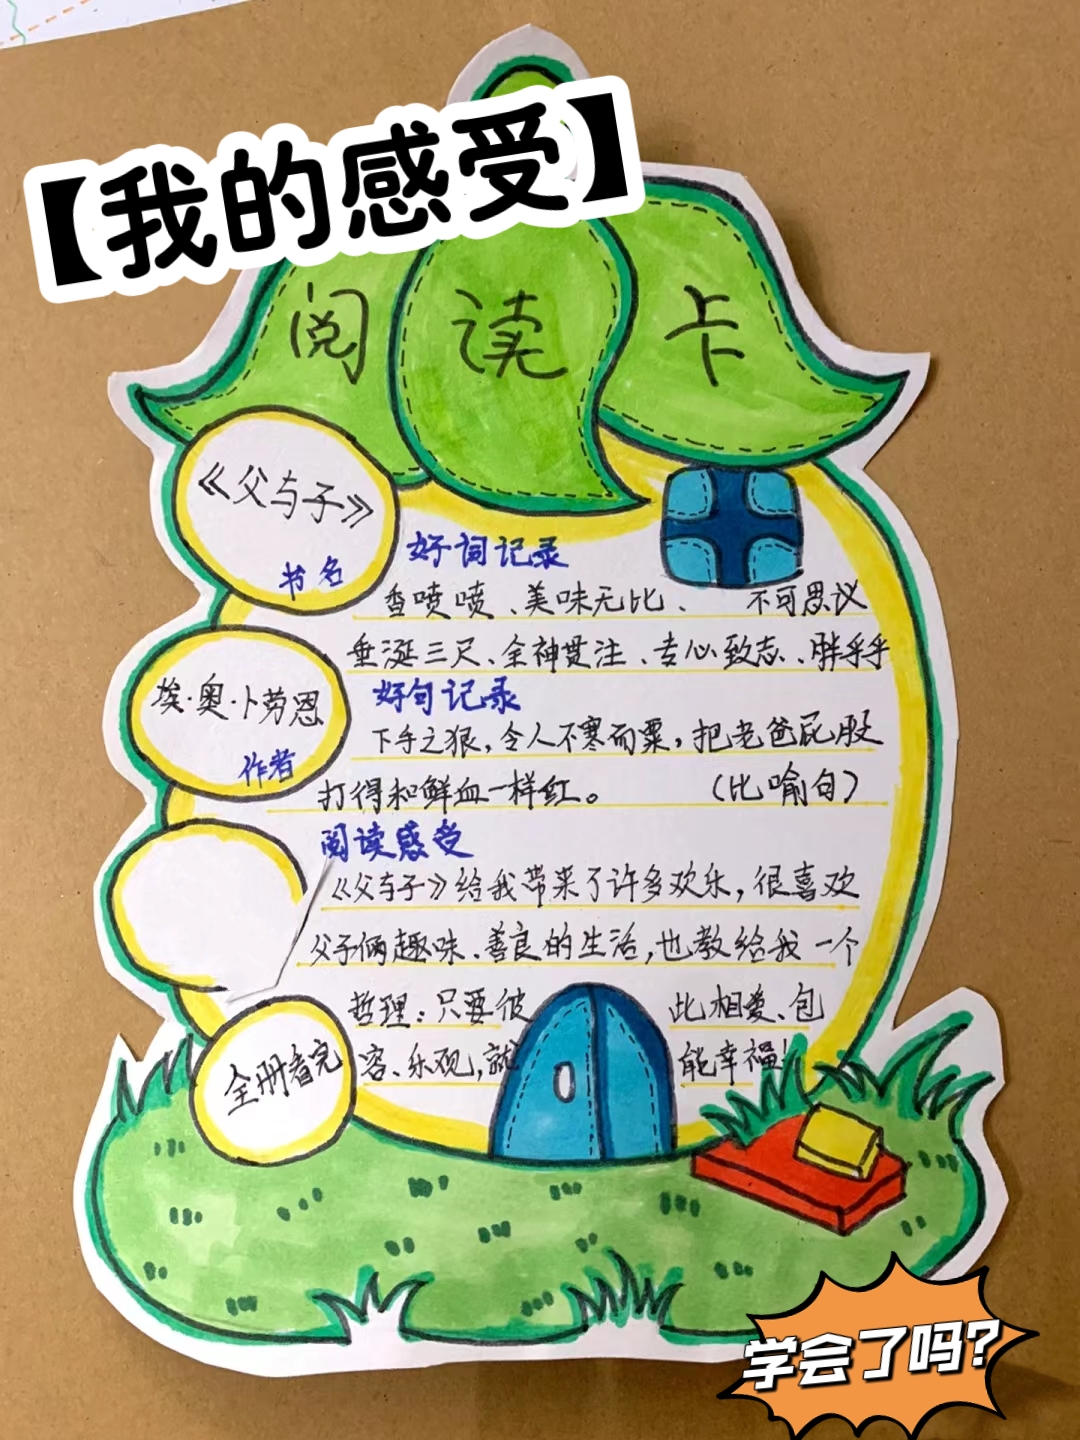 【我的感受】
阅读卡
《父与子》
书名
好词记录
香喷喷、美味无比、不可思议
垂涎三尺、全神贯注、专心致志、胖乎乎
埃·奥·卜劳恩
作者
好句记录
下手之狠,令人不寒而粟,把老爸屁股
打得和鲜血一样红。(比喻句)
阅读感受
《父与子》给我带来了许多欢乐,很喜欢
父子俩趣味、善良的生活,也教给我一个
哲理:只要彼此相爱、包
容、乐观,就能幸福!
全册看完
学会了吗?